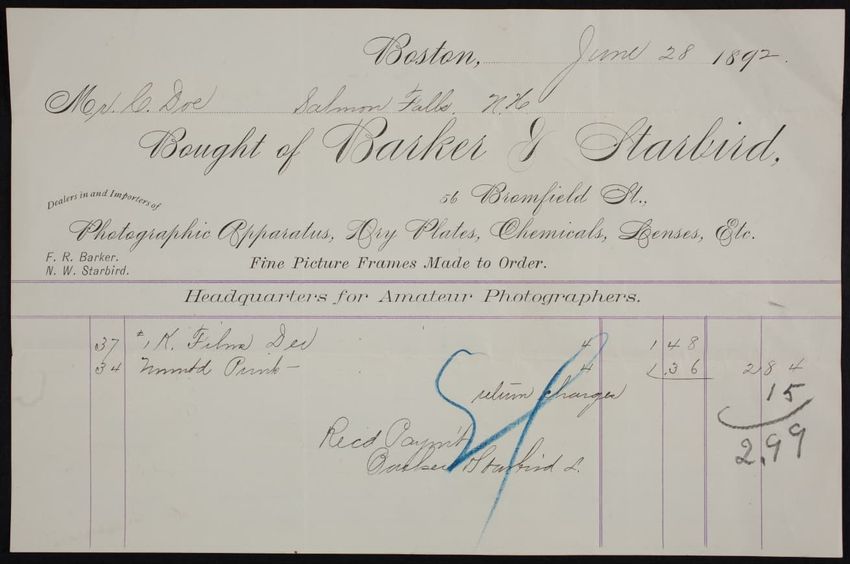 Boston, June 28 1892.
Mr. C. Doe Salmon Falls. N.H.
Bought of Barker & Starbird,
Dealers in and Importers of
56 Bromfield St.,
Photographic Apparatus, Dry Plates, Chemicals, Lenses, Etc.
F. R. Barker.
N. W. Starbird.
Fine Picture Frames Made to Order.
Headquarters for Amateur Photographers.
37 #1 K. Films Dev 4 1 48
34 Unmtd Print— 4 1.36 2 84
return charges 15
2.99
Rec'd Paym't
Barker Starbird